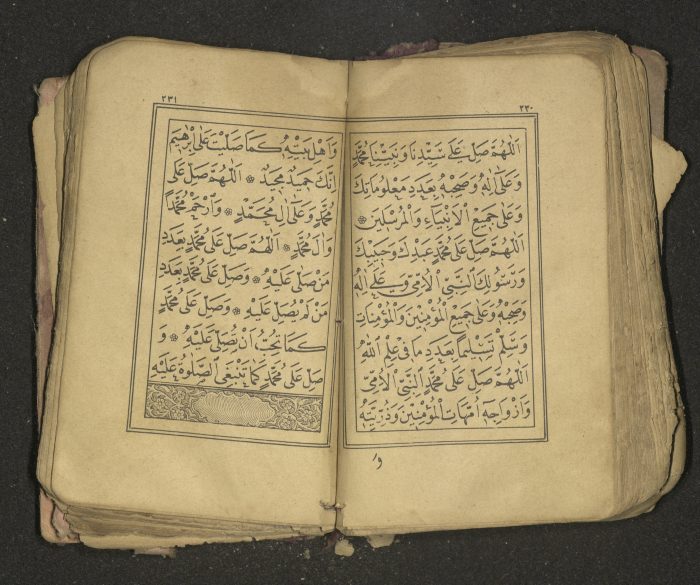 ٢٣٠
اَللّٰهُمَّ صَلِّ عَلٰى سَيِّدِنَا وَنَبِيِّنَا مُحَمَّدٍ
وَعَلٰى اٰلِهٖ وَصَحْبِهٖ بِعَدَدِ مَعْلُومَاتِكَ
وَعَلٰى جَمِيعِ الْاَنْبِيَاءِ وَالْمُرْسَلِينَ ❁
اَللّٰهُمَّ صَلِّ عَلٰى مُحَمَّدٍ عَبْدِكَ وَحَبِيبِكَ
وَرَسُولِكَ النَّبِيِّ الْاُمِّيِّ وَعَلٰى اٰلِهٖ
وَصَحْبِهٖ وَعَلٰى جَمِيعِ الْمُؤْمِنِينَ وَالْمُؤْمِنَاتِ
وَسَلِّمْ تَسْلِيمًا بِعَدَدِ مَا فِي عِلْمِ اللّٰهِ
اَللّٰهُمَّ صَلِّ عَلٰى مُحَمَّدٍ النَّبِيِّ الْاُمِّيِّ
وَاَزْوَاجِهٖ اُمَّهَاتِ الْمُؤْمِنِينَ وَذُرِّيَّتِهٖ
وا
٢٣١
وَاَهْلِ بَيْتِهٖ كَمَا صَلَّيْتَ عَلٰى اِبْرٰهِيمَ
اِنَّكَ حَمِيدٌ مَجِيدٌ ❁ اَللّٰهُمَّ صَلِّ عَلٰى
مُحَمَّدٍ وَعَلٰى اٰلِ مُحَمَّدٍ ❁ وَارْحَمْ مُحَمَّدًا
وَاٰلَ مُحَمَّدٍ ❁ اَللّٰهُمَّ صَلِّ عَلٰى مُحَمَّدٍ بِعَدَدِ
مَنْ صَلّٰى عَلَيْهِ ❁ وَصَلِّ عَلٰى مُحَمَّدٍ بِعَدَدِ
مَنْ لَمْ يُصَلِّ عَلَيْهِ ❁ وَصَلِّ عَلٰى مُحَمَّدٍ
كَمَا تُحِبُّ اَنْ يُصَلّٰى عَلَيْهِ ❁ وَ
صَلِّ عَلٰى مُحَمَّدٍ كَمَا تَنْبَغِي الصَّلٰوةُ عَلَيْهِ